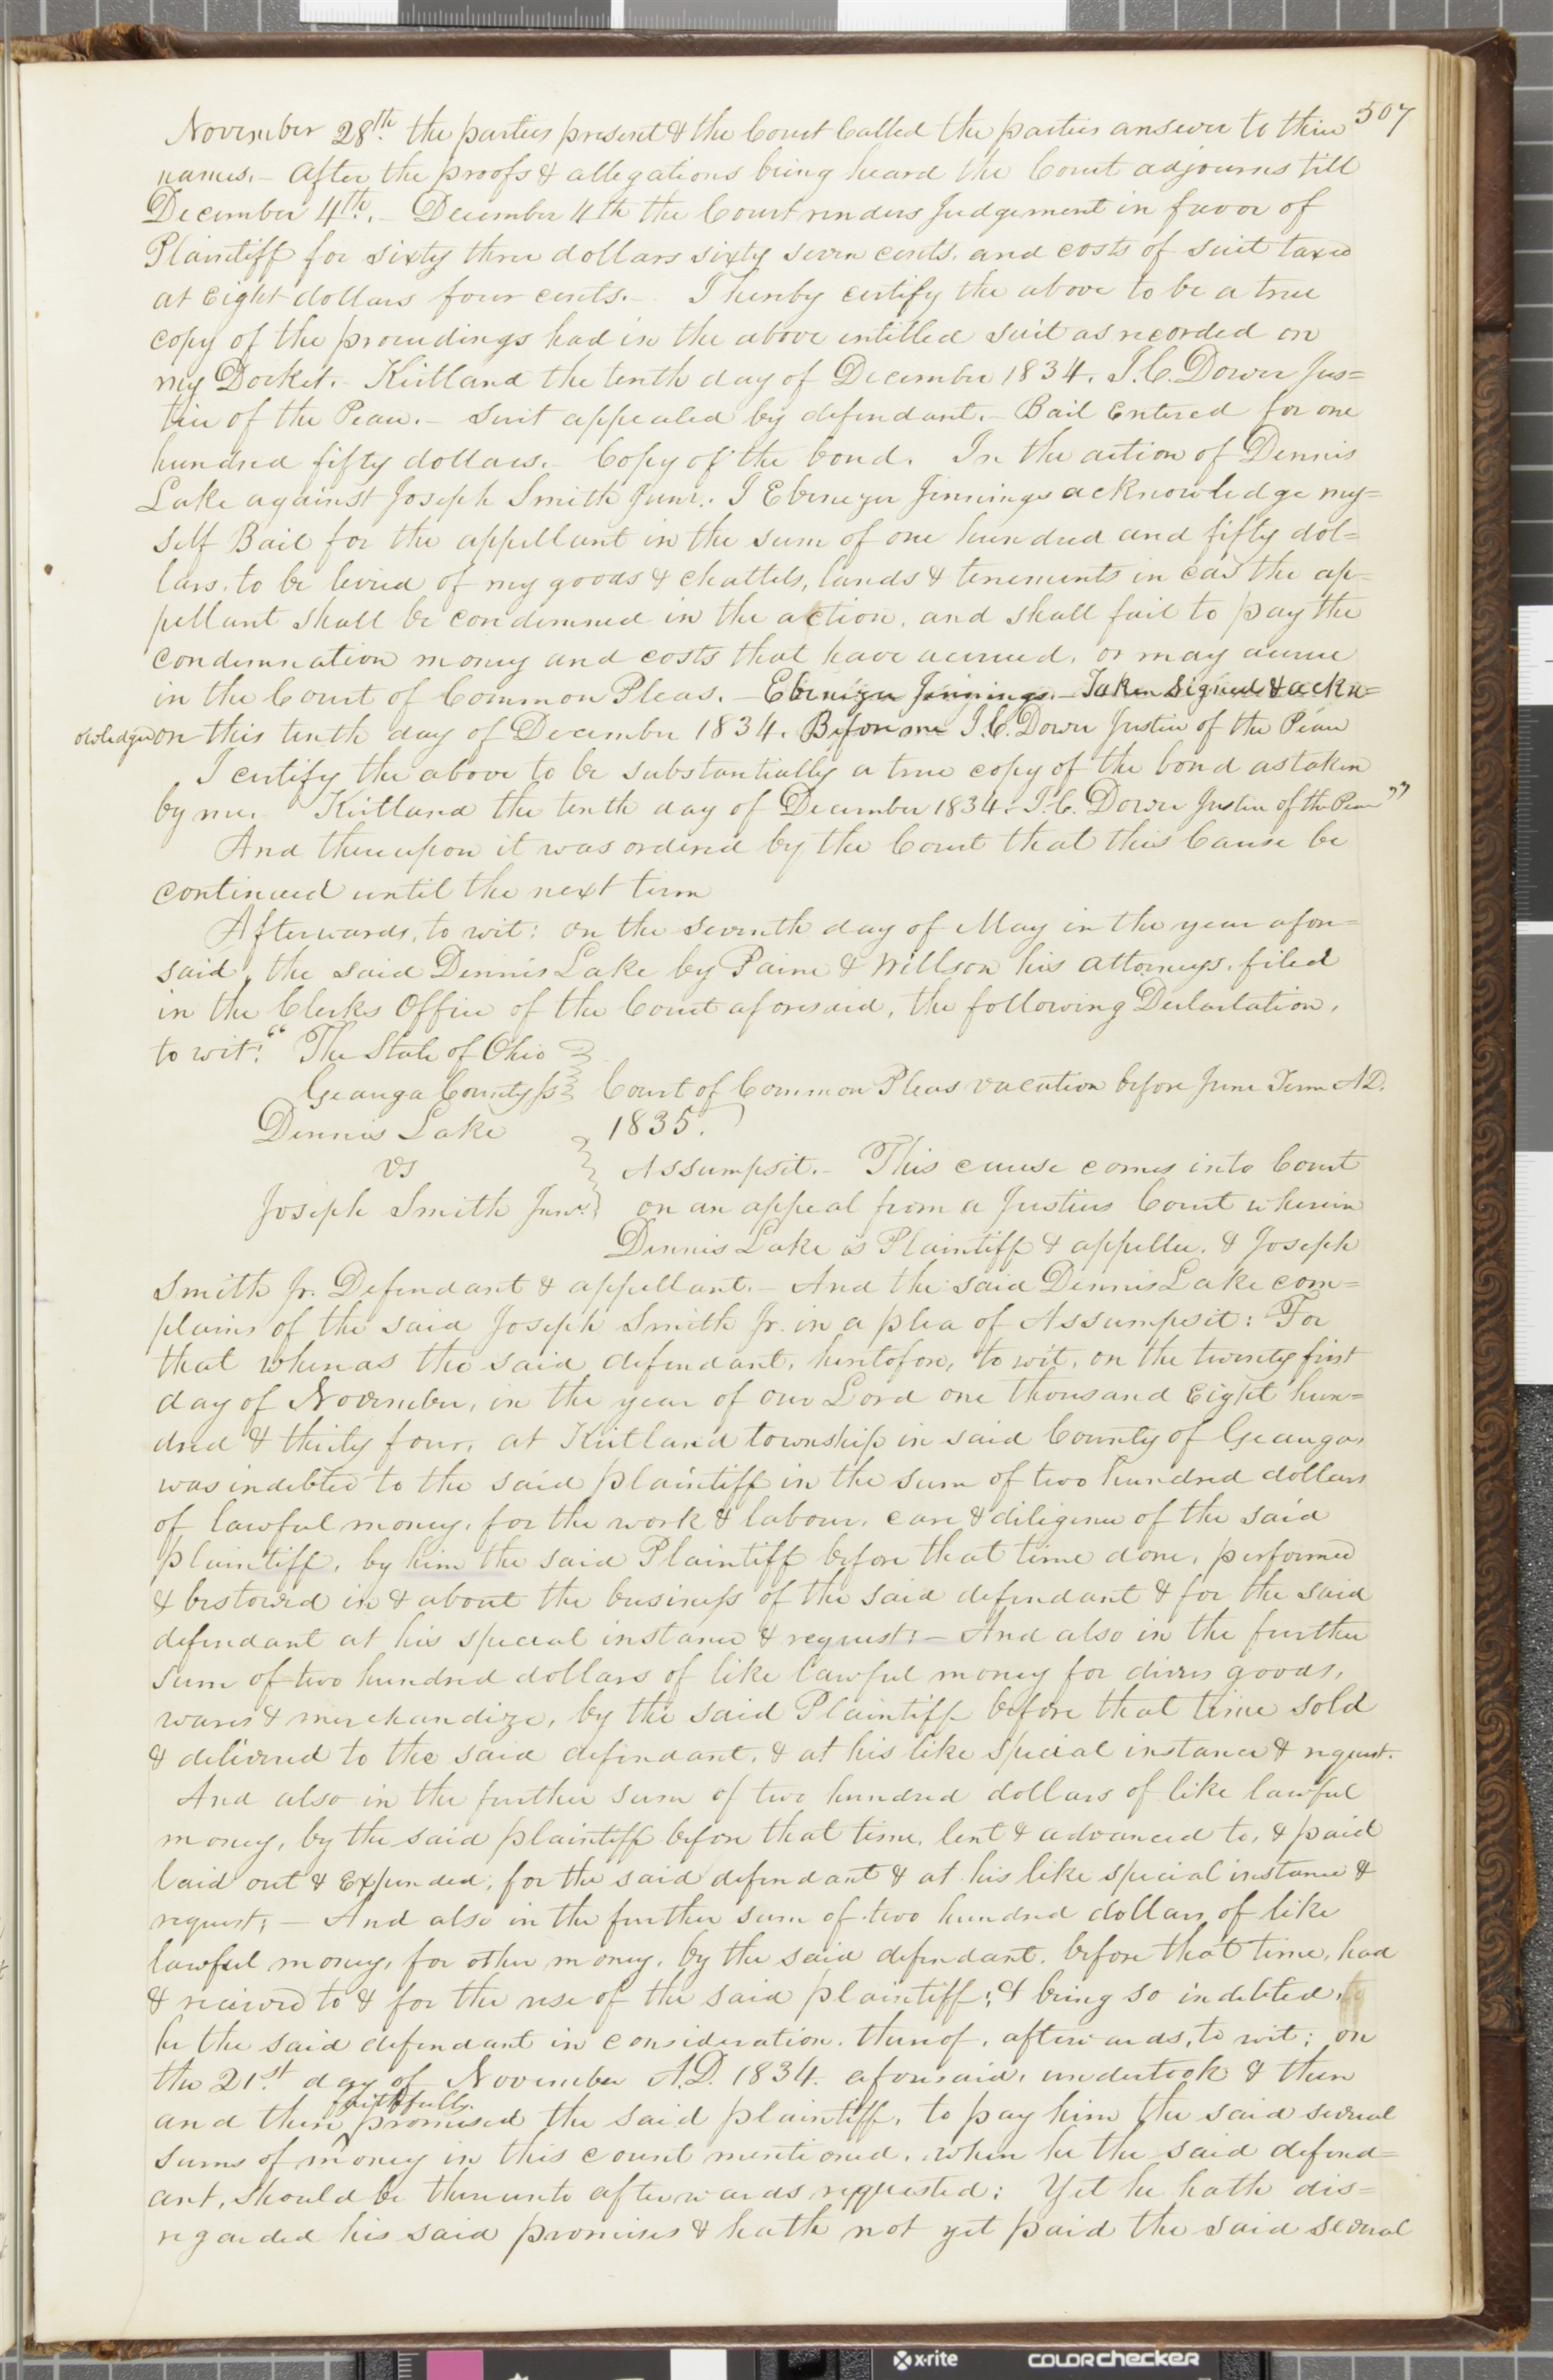 507
November 28th. the parties present & the Court Called the parties answer to their
names. – After the proofs & allegations being heard the Court adjourns till
December 4th. – December 4th the Court renders Judgement in favor of
Plaintiff for sixty three dollars sixty seven cents, and costs of suit taxed
at Eight dollars four cents. – I hereby certify the above to be a true
copy of the proceedings had in the above entitled suit as recorded on
my Docket. – Kirtland the tenth day of December 1834. J. C. Dowen Jus=
tice of the Peace. – Suit appealed by defendant. – Bail Entered for one
hundred fifty dollars. – Copy of the bond. In the action of Dennis
Lake against Joseph Smith Junr. I Ebenezer Jennings acknowledge my=
self Bail for the appellant in the sum of one hundred and fifty dol=
lars, to be levied of my goods & chattels, lands & tenements in case the ap=
pellant shall be condemned in the action, and shall fail to pay the
condemnation money and costs that have accrued, or may accrue
in the Court of Common Pleas. – Ebenezer Jennings. – Taken Signed & ackn=
owledged on this tenth day of December 1834. Before me J. C. Dowen Justice of the Peace
I certify the above to be substantially a true copy of the bond as taken
by me. Kirtland the tenth day of December 1834. J. C. Dowen Justice of the Peace"
And thereupon it was ordered by the Court that this Cause be
continued until the next term
Afterwards, to wit: on the seventh day of May in the year afore=
said, the said Dennis Lake by Paine & Willson his attorneys, filed
in the Clerks Office of the Court aforesaid, the following Declaration,
to wit: "The State of Ohio
Geauga County ss Court of Common Pleas vacation before June Term A.D.
Dennis Lake 1835.
vs Assumpsit. – This cause comes into Court
Joseph Smith Junr. on an appeal from a Justices Court wherein
Dennis Lake is Plaintiff & appellee, & Joseph
Smith Jr. Defendant & appellant. – And the said Dennis Lake com=
plains of the said Joseph Smith Jr. in a plea of Assumpsit: For
that whereas the said defendant, heretofore, to wit, on the twenty first
day of November, in the year of our Lord one thousand Eight hun=
dred & thirty four, at Kirtland township in said County of Geauga,
was indebted to the said plaintiff in the sum of two hundred dollars
of lawful money, for the work & labour, care & diligence of the said
plaintiff, by him the said Plaintiff before that time done, performed
& bestowed in & about the business of the said defendant & for the said
defendant at his special instance & request: – And also in the further
sum of two hundred dollars of like lawful money for divers goods,
wares & merchandize, by the said Plaintiff before that time sold
& delivered to the said defendant, & at his like special instance & request.
And also in the further sum of two hundred dollars of like lawful
money, by the said plaintiff before that time, lent & advanced to, & paid
laid out & Expended, for the said defendant & at his like special instance &
request; – And also in the further sum of two hundred dollars of like
lawful money, for other money, by the said defendant, before that time, had
& received to & for the use of the said plaintiff; & being so indebted,
he the said defendant in consideration thereof, afterwards, to wit; on
the 21st. day of November A.D. 1834. aforesaid, undertook & then
and there faithfully promised the said plaintiff, to pay him the said several
sums of money in this count mentioned, when he the said defend=
ant, should be thereunto afterwards requested: Yet he hath dis=
regarded his said promises & hath not yet paid the said several
x-rite
COLORCHECKER